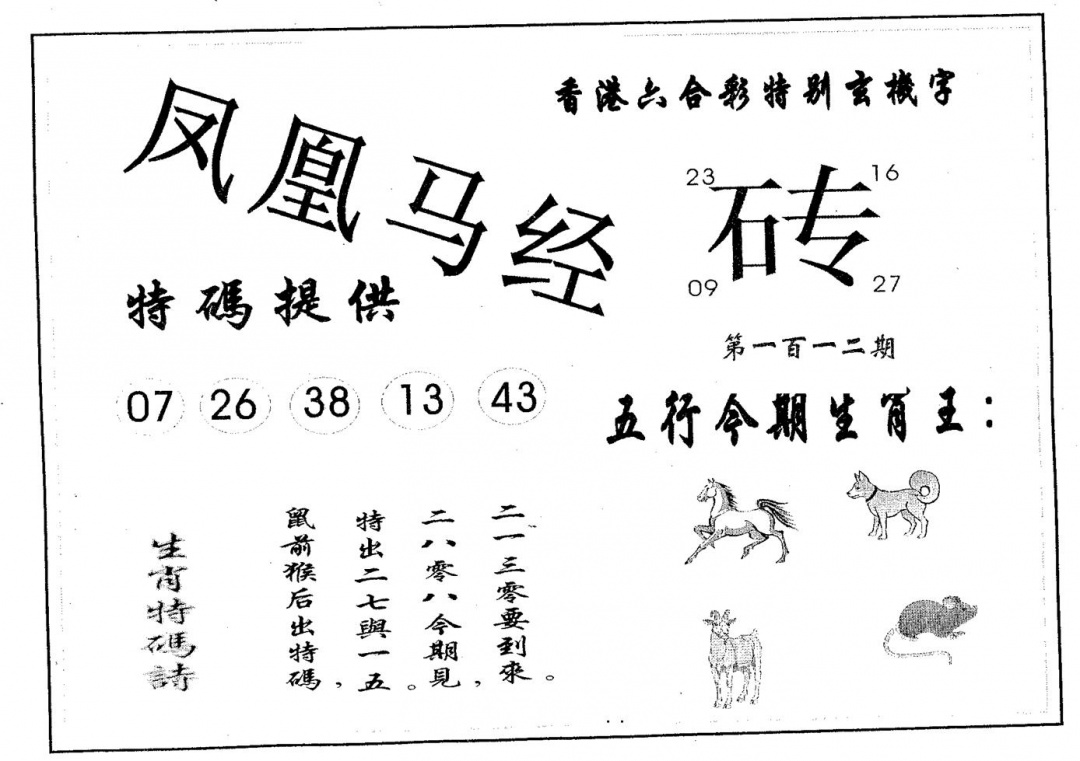 香港六合彩特别玄機字
凤凰马经
23
16
砖
09
27
特碼提供
第一百一二期
07 26 38 13 43
五行今期生肖王：
生肖特碼詩
鼠前猴后出特碼，
特出二七與一五。
二八零八今期見，
二一三零要到來。